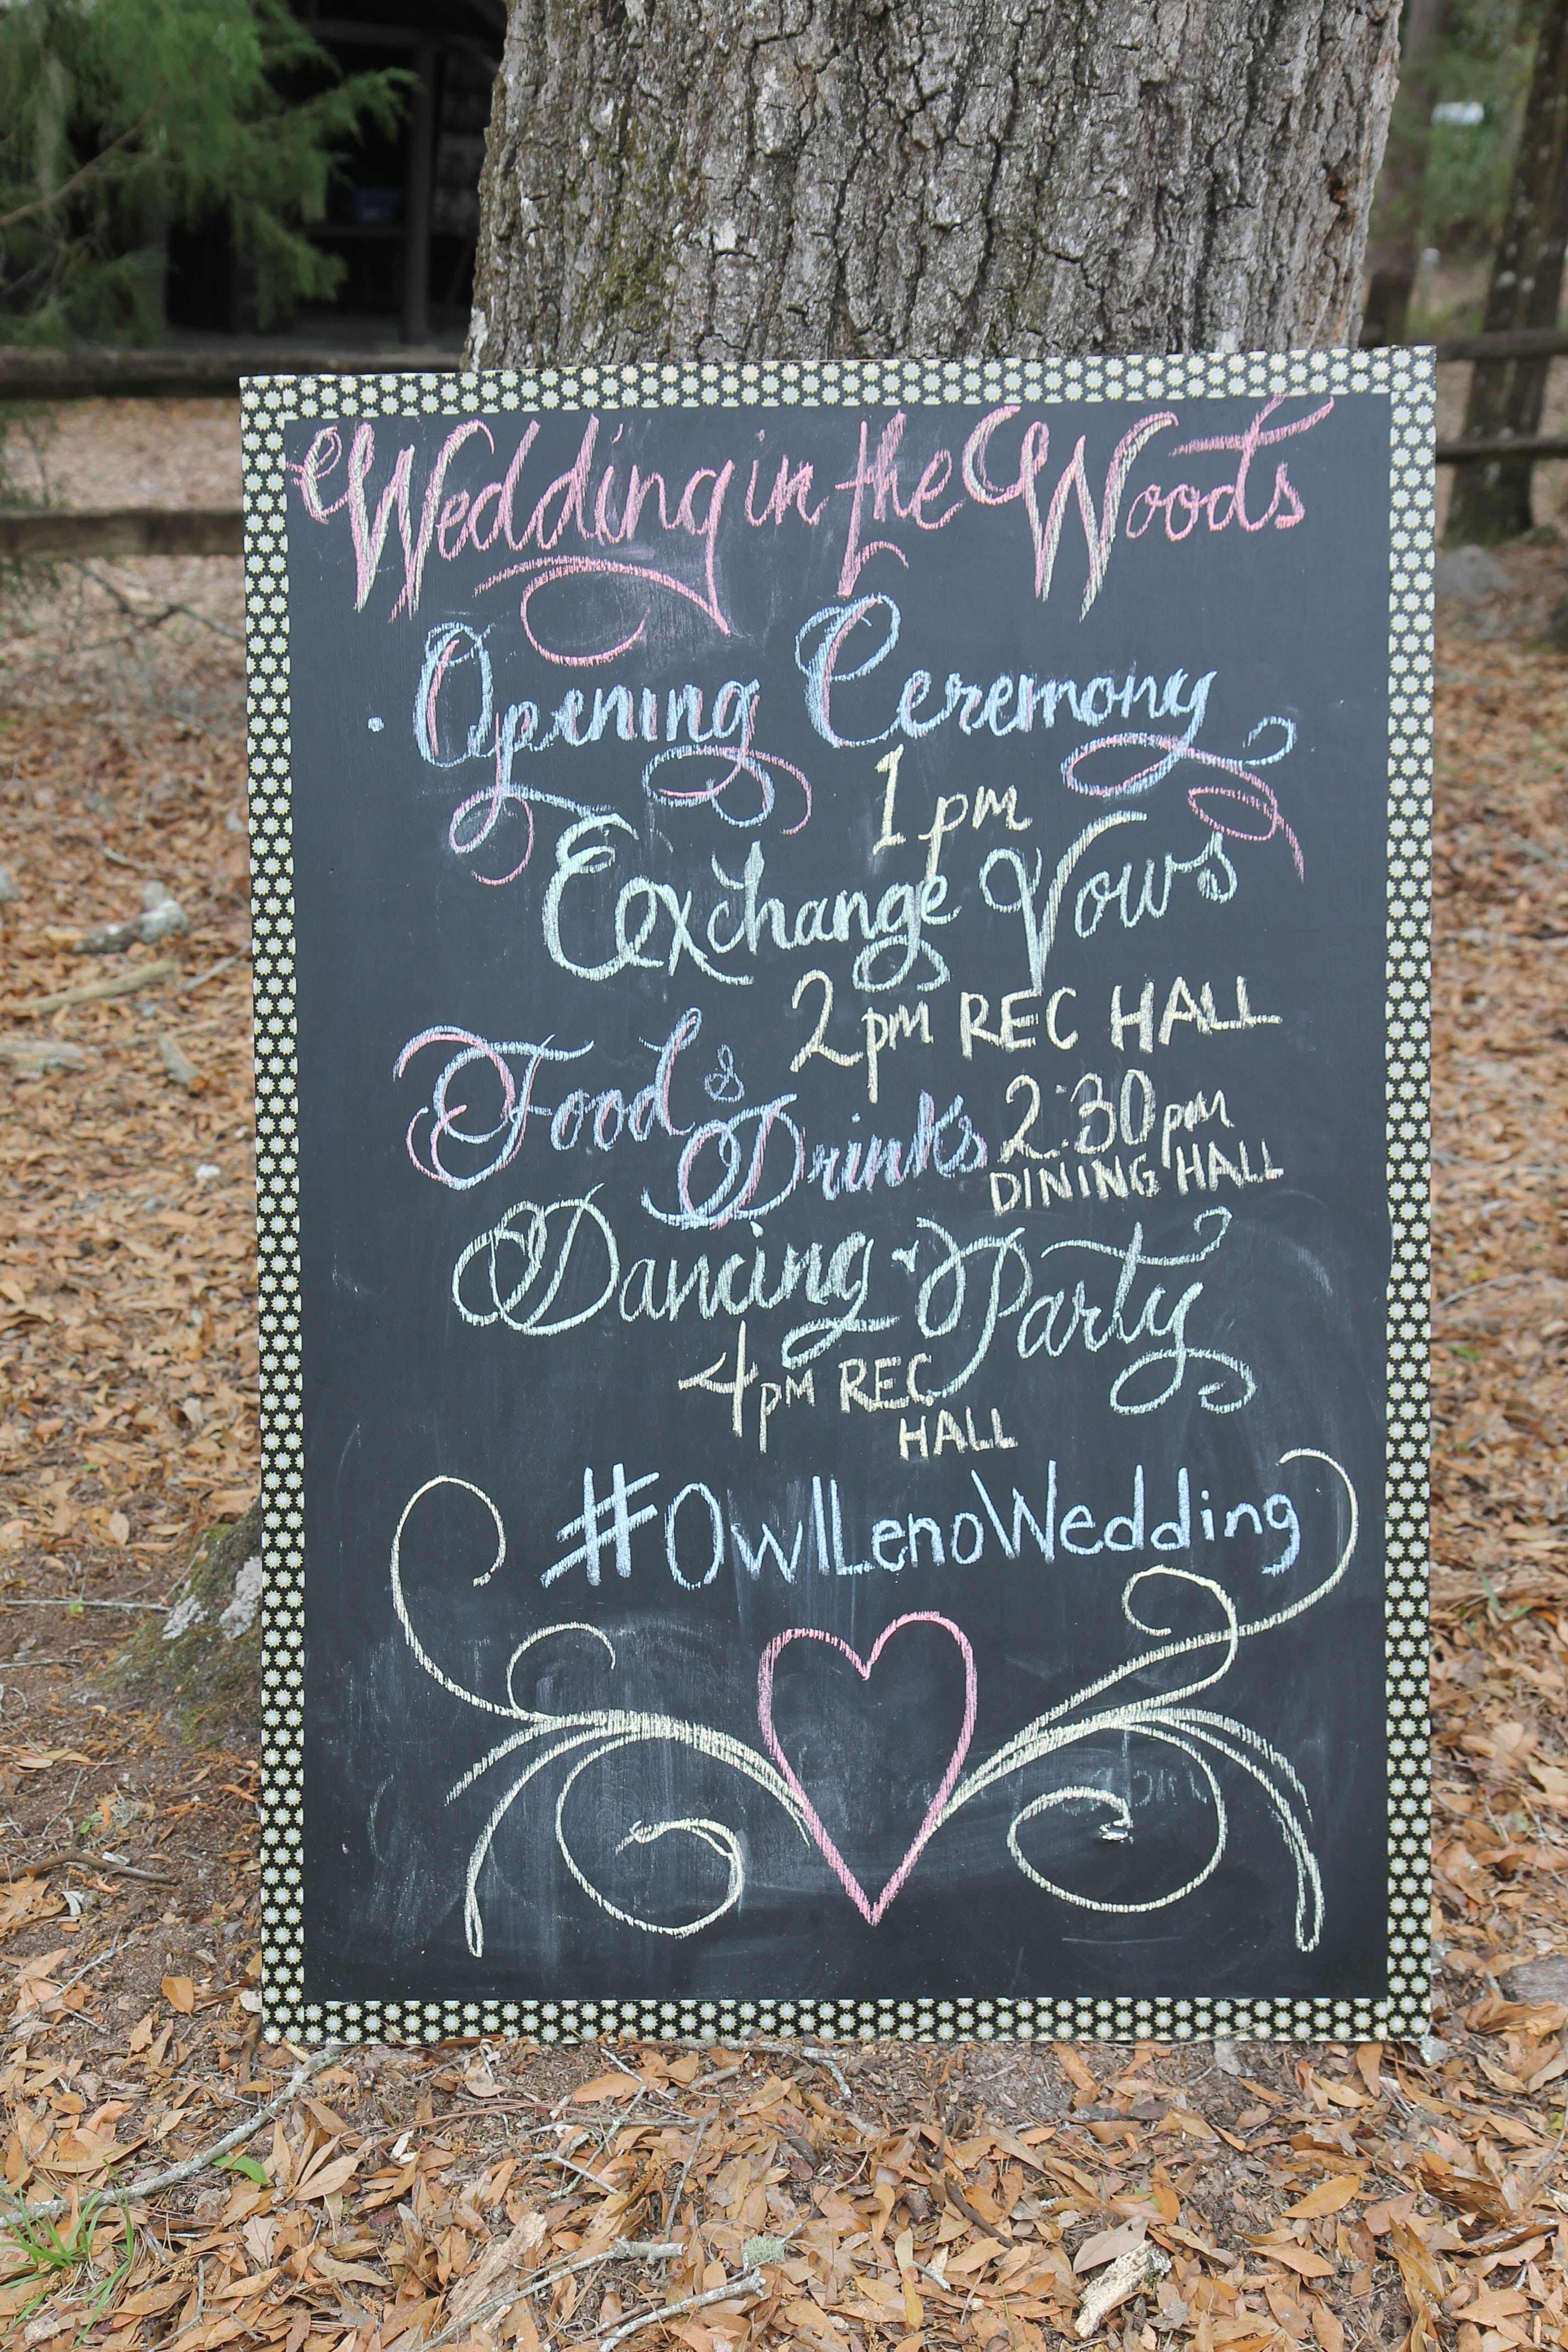 Wedding in the Woods
· Opening Ceremony
1pm
Exchange Vows
2pm REC HALL
Food &
Drinks 2:30pm
DINING HALL
Dancing & Party
4pm REC
HALL
#OwlLenoWedding